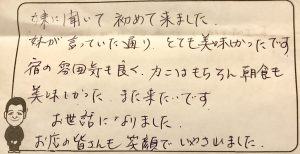 妹に聞いて初めて来ました.
妹が言っていた通り、とても美味しかったです
宿の雰囲気も良く、カニはもちろん朝食も
美味しかった。また来たいです
お世話になりました.
お店の皆さんも笑顔で